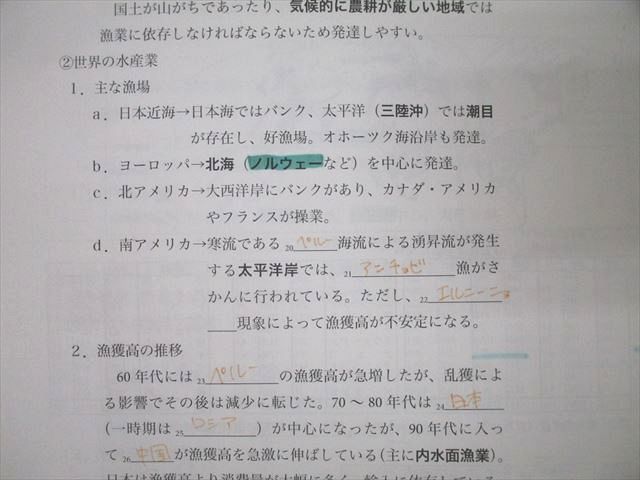 国土が山がちであったり、気候的に農耕が厳しい地域では
漁業に依存しなければならないため発達しやすい。
②世界の水産業
1．主な漁場
a．日本近海→日本海ではバンク、太平洋（三陸沖）では潮目
が存在し、好漁場。オホーツク海沿岸も発達。
b．ヨーロッパ→北海（ノルウェーなど）を中心に発達。
c．北アメリカ→大西洋岸にバンクがあり、カナダ・アメリカ
やフランスが操業。
d．南アメリカ→寒流である20ペルー海流による湧昇流が発生
する太平洋岸では、21アンチョビ漁がさ
かんに行われている。ただし、22エルニーニョ
現象によって漁獲高が不安定になる。
2．漁獲高の推移
60年代には23ペルーの漁獲高が急増したが、乱獲によ
る影響でその後は減少に転じた。70～80年代は24日本
（一時期は25ロシア）が中心になったが、90年代に入っ
て26中国が漁獲高を急激に伸ばしている（主に内水面漁業）。
日本は漁獲高より消費量が大幅に多く、輸入に依存している